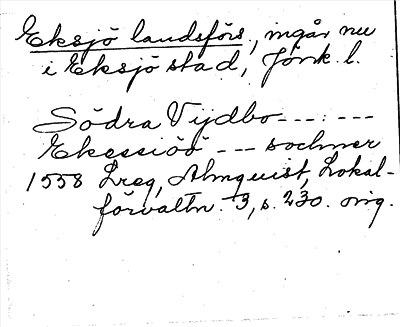 Eksjö landsförs., ingår nu
i Eksjö stad, Jönk. l.
Södra Vijdbo --- : ---
Ekessiöö --- sochner
1558 Lreg, Almquist, Lokal-
förvaltn. 3, s. 230. orig.